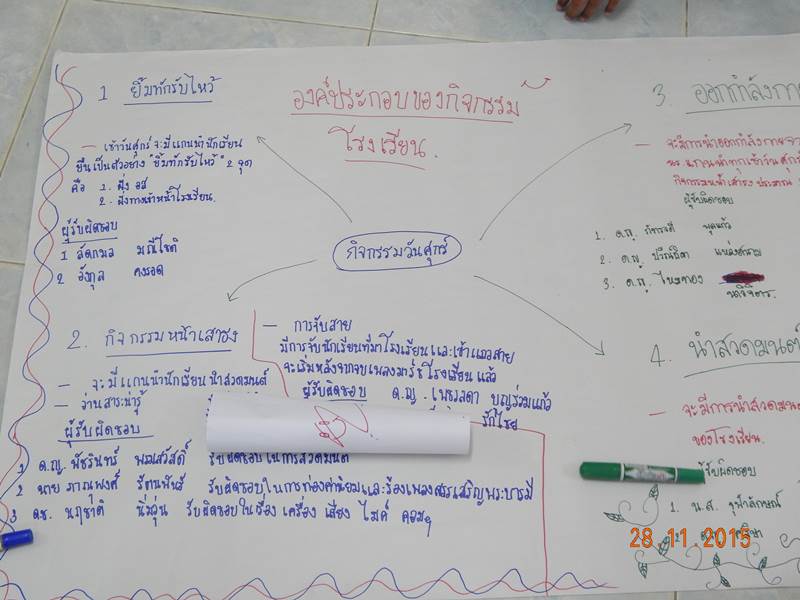 องค์ประกอบของกิจกรรม
โรงเรียน.
กิจกรรมวันศุกร์
1 ยิ้มทักรับไหว้
— เช้าวันศุกร์จะมีแกนนำนักเรียน
ยืนเป็นตัวอย่าง "ยิ้มทักรับไหว้" 2 จุด
คือ 1. ฝั่ง
2. ฝั่งทางเข้าหน้าโรงเรียน.
ผู้รับผิดชอบ
1 ลัดกมล มณีโชติ
2 อังกุล คงรอด
2. กิจกรรมหน้าเสาธง
— จะมีแกนนำนักเรียนนำสวดมนต์
— อ่านสาระน่ารู้
ผู้รับผิดชอบ
1 ด.ญ. พัชรินทร์ รับผิดชอบในการสวดมนต์
2 นาย ภาณุพงศ์ รัตนพันธ์ รับผิดชอบในการท่องค่านิยมและร้องเพลงสรรเสริญพระบารมี
3 ดช. นฤชาติ รับผิดชอบในเรื่อง เครื่อง เสียง ไมค์ คอมๆ
— การจับสาย
มีการจับนักเรียนที่มาโรงเรียนและเข้าแถวสาย
จะเริ่มหลังจากจบเพลงมาร์ชโรงเรียนแล้ว
ผู้รับผิดชอบ ด.ญ. เพชรลดา บุญร่วมแก้ว
รักไชย
3. ออกกำลังกา
— จะมีการนำออกกำลังกาย
นร. แกนนำทุกเช้าวันศุกร์
กิจกรรมหน้าเสาธง ประมาณ
ผู้รับผิดชอบ
1. ด.ญ.
2. ด.ญ. ปวีณธิดา
3. ด.ญ. ใบตอง
4. นำสวดมนต์
— จะมีการนำสวดมนต์
ของโรงเรียน.
รับผิดชอบ
1. น.ส. จุฬาลักษณ์
2.
28 11 2015